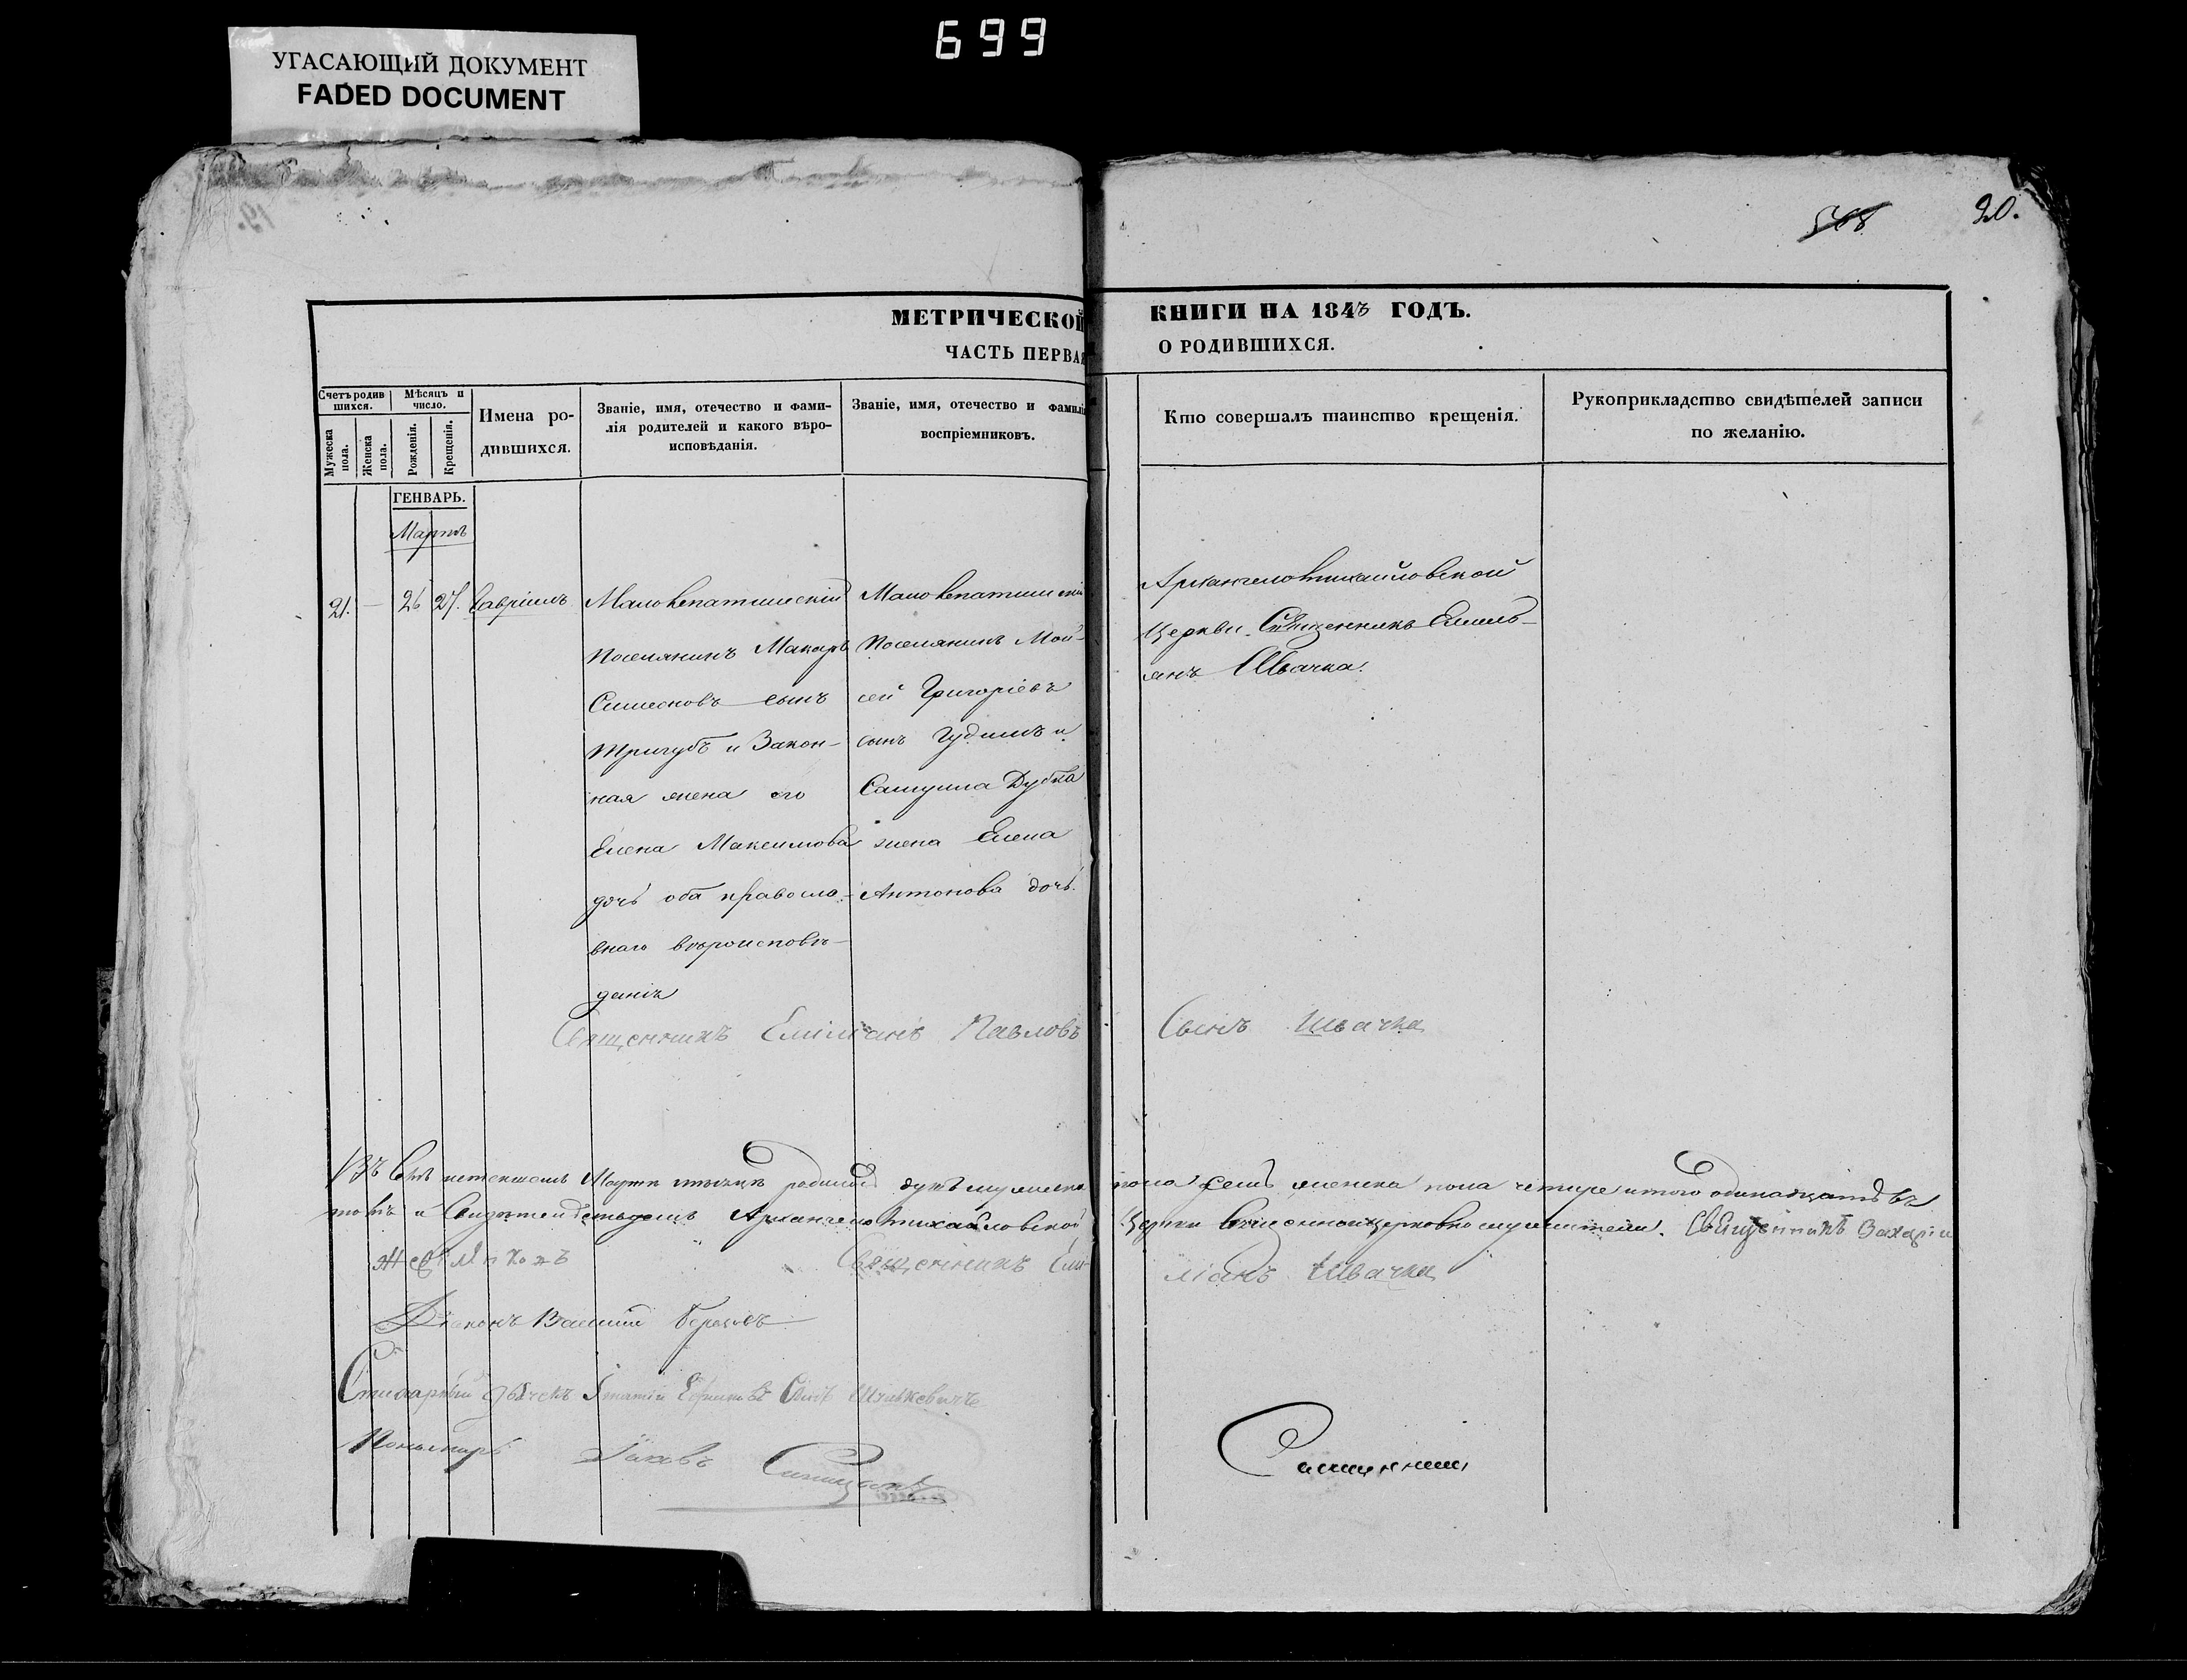 699
УГАСАЮЩИЙ ДОКУМЕНТ
FADED DOCUMENT
19.
568
20.
МЕТРИЧЕСКОЙ КНИГИ НА 184 ГОДЪ.
ЧАСТЬ ПЕРВАЯ О РОДИВШИХСЯ.
Счетъ родив
шихся.
Мужеска
пола.
Женска
пола.
Мѣсяцъ и
число.
Рожденія.
Крещенія.
Имена ро-
дившихся.
Званіе, имя, отечество и фами-
лія родителей и какого вѣро-
исповѣданія.
Званіе, имя, отечество и фамилія
воспріемниковъ.
Кто совершалъ таинство крещенія.
Рукоприкладство свидѣтелей записи
по желанію.
ГЕНВАРЬ.
Мартъ
21. — 26 27. Гавріилъ
Поселянинъ Макаръ
Симеоновъ сынъ
Тригубъ и Закон-
ная жена его
Елена Максимова
дочь оба правосла-
внаго вѣроисповѣ-
данія
Поселянинъ Мои-
сей Григоріевъ
сынъ Гудимъ и
Самуила Дубка
жена Елена
Антонова дочь.
Архангеломихайловской
Церкви Священникъ Емель-
янъ Швачка.
Священникъ Емиліанъ Павловъ Сынъ Швачка
Въ семъ истекшемъ Мартѣ мѣсяцѣ родилось душъ мужеска пола семь женска пола четыре итого одинадцать въ
Архангеломихайловской Церкви Священникъ Захарій
Священникъ Еми- ліанъ Швачка
Діаконъ Василій
Стихарный Сынъ
Пономарь Іаковъ Синицкій